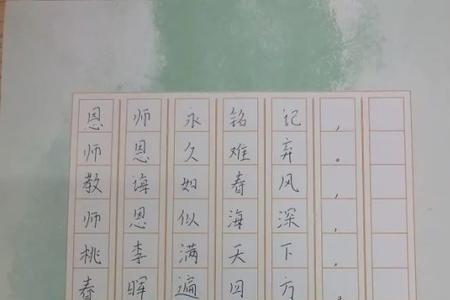 恩师永铭记,
师恩久难弃。
教诲如春风,
师恩似海深,
桃李满天下,
春晖遍四方